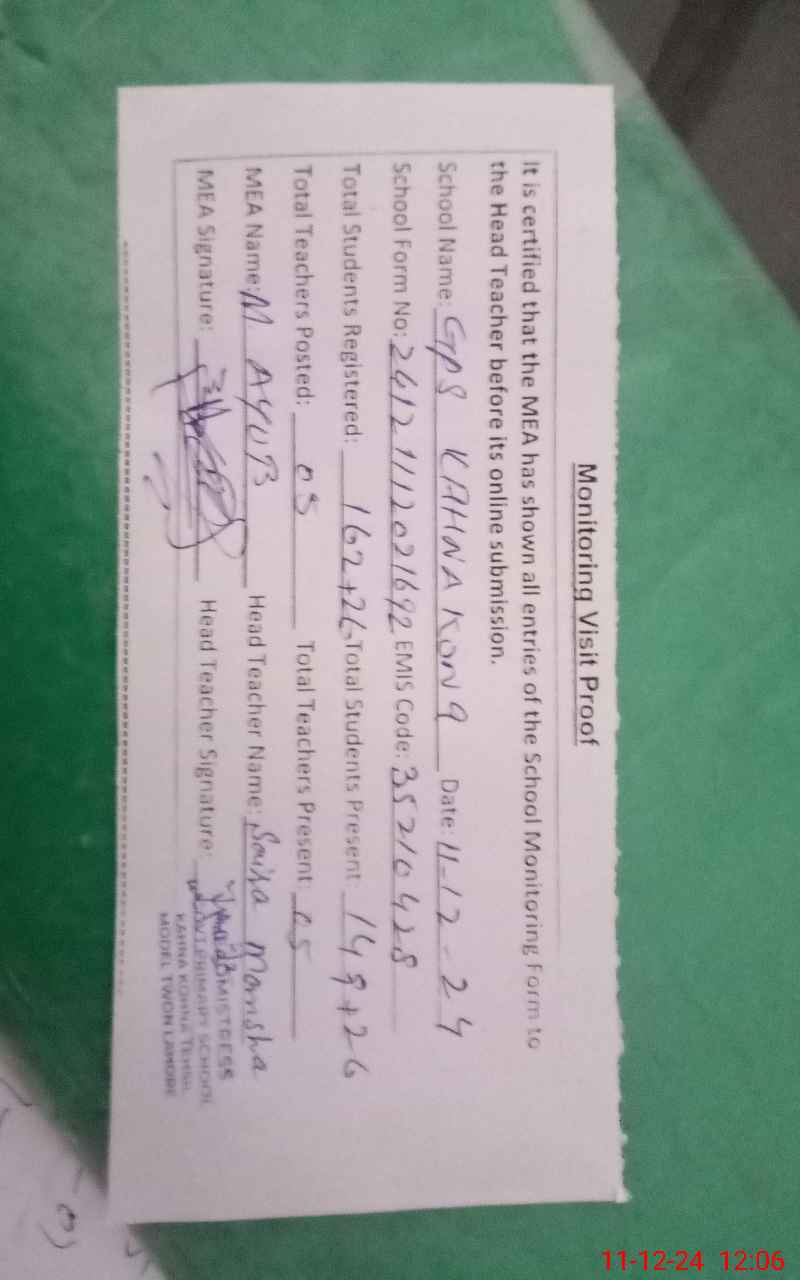 Monitoring Visit Proof
It is certified that the MEA has shown all entries of the School Monitoring Form to
the Head Teacher before its online submission.
School Name: GPS KAHNA KOHNA Date: 11-12-24
School Form No: 241211112021692 EMIS Code: 35210428
Total Students Registered: 162+26 Total Students Present: 149+26
Total Teachers Posted: 05 Total Teachers Present: 05
MEA Name: M. AYUB Head Teacher Name:
MEA Signature: Head Teacher Signature:
MISTRESS
PRIMARY SCHOOL
KAHNA KOHNA TEHSIL
MODEL TWON LAHORE
11-12-24 12:06